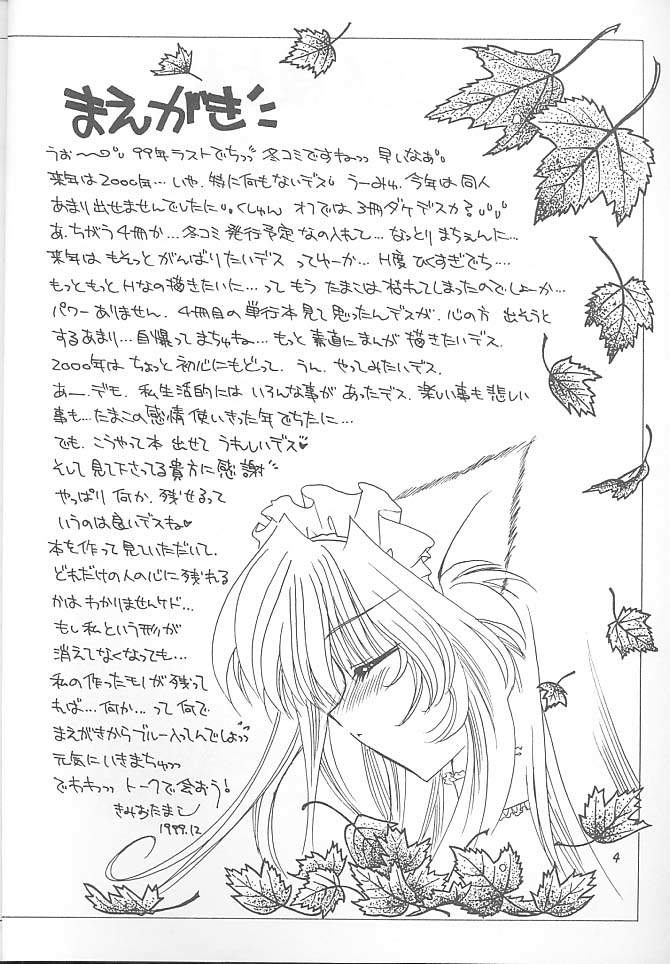 まえがき
うぉ〜、99年ラストでちっ 冬コミですねっっ 早いなあ
来年は2000年…いや、特に何もないデス。うーみゅ、今年は同人
あまり出せませんでしたに。くしゅん オフでは3冊ダケデスカ?
あ、ちがう4冊か…冬コミ発行予定なの入れて…なっとりまちぇんに…
来年はもそっとがんばりたいデス ってゆーか…H度ひくすぎでち…
もっともっとHなの描きたいに…ってもうたまこは枯れてしまったのでしょーか…
パワーありません。4冊目の単行本見て思ったんデスが、心の方 出そうと
するあまり…自爆ってまちゅね…もっと素直にまんが描きたいデス。
2000年はちょっと初心にもどって、うん、やってみたいデス。
あー、デモ、私生活的にはいろんな事があったデス、楽しい事も悲しい
事も…たまこの感情使いきった年でちたに…
でも、こうやって本出せてうれしいデス♥
そして見て下さってる貴方に感謝
やっぱり何か、残せるって
いうのは良いデスね♥
本を作って見ていただいて、
どれだけの人の心に残れる
かはわかりませんケド…
もし私という形が
消えてなくなっても…
私の作ったモノが残って
れば…何か…って何で
まえがきからブルー入ってんでしょっっ
元気にいきまちゅっ
でわわっっ トークで会おう!
きみおたまこ
1999.12
4